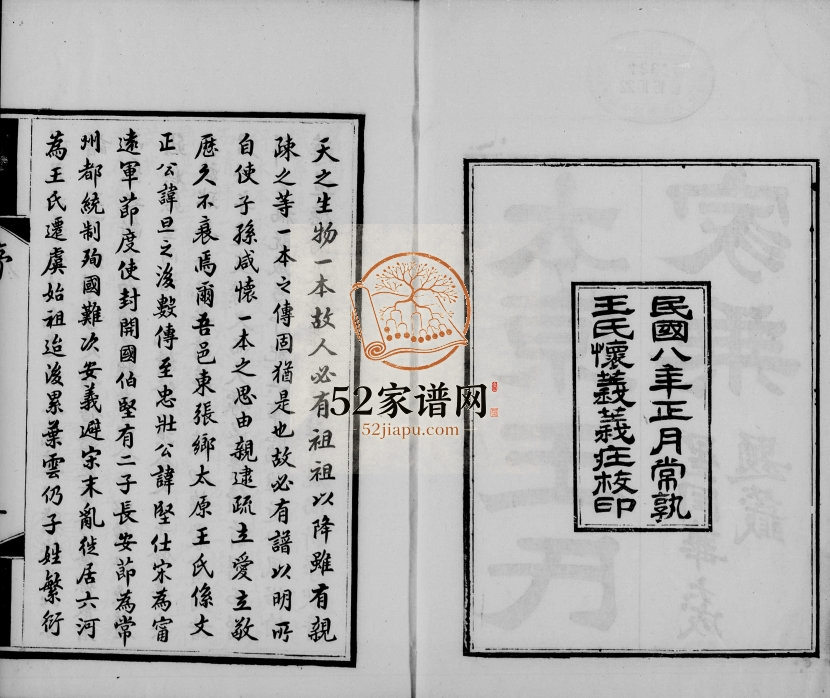 民國八年正月常孰
王氏懷義義莊校印
天之生物一本故人必有祖祖以降雖有親
疎之等一本之傳固猶是也故必有譜以明所
自使子孫咸懷一本之思由親逮疏立愛立敬
歷久不衰焉爾吾邑東張鄉太原王氏係文
正公諱旦之後數傳至忠壯公諱堅仕宋為甯
遠軍節度使封開國伯堅有二子長安節為常
州都統制殉國難次安義避宋末亂徙居六河
為王氏遷虞始祖迨後累葉雲仍子姓繁衍
52家谱网
52jiapu.com